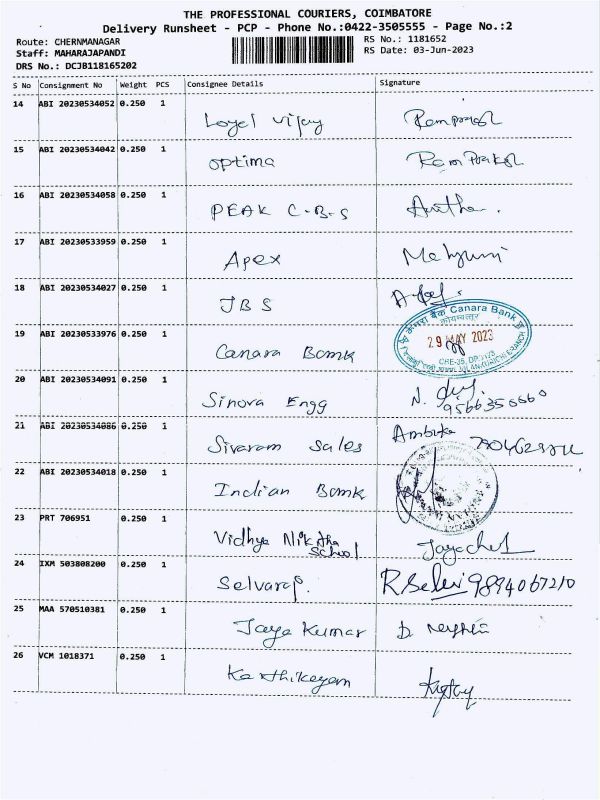 THE PROFESSIONAL COURIERS, COIMBATORE
Delivery Runsheet - PCP - Phone No.:0422-3505555 - Page No.:2
Route: CHERNMANAGAR
Staff: MAHARAJAPANDI
DRS No.: DCJB118165202
RS No.: 1181652
RS Date: 03-Jun-2023
S No Consignment No Weight PCS Consignee Details Signature
14 ABI 20230534052 0.250 1 Loyel Vijay Ramprakash
15 ABI 20230534042 0.250 1 optima Ram Prakash
16 ABI 20230534058 0.250 1 PEAK C.B.S
17 ABI 20230533959 0.250 1 Apex
18 ABI 20230534027 0.250 1 JBS
19 ABI 20230533976 0.250 1 Canara Bank
केनरा बैंक Canara Bank
कोयम्बत्तूर
29 MAY 2023
20 ABI 20230534091 0.250 1 Sinova Engg N.
21 ABI 20230534086 0.250 1 Sivaram Sales Ambika
22 ABI 20230534018 0.250 1 Indian Bank
23 PRT 706951 0.250 1 Vidhya Niketha
School
24 IXM 503808200 0.250 1 Selvaraj. R.Selvi 9894067210
25 MAA 570510381 0.250 1 Jaya Kumar D.
26 VCM 1018371 0.250 1 Karthikeyam